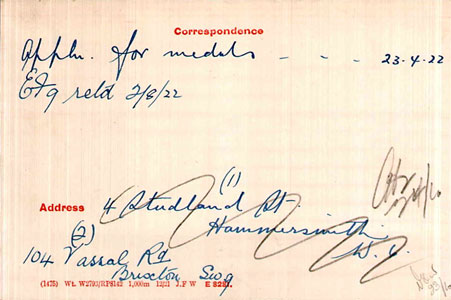 Correspondence
Appln. for medals - - - 23-4-22
EF9 retd 2/8/22
(1)
Address 4 Studland St.
Hammersmith
W. 6.
(2)
104 Vassal Rd
Brixton SW9
(1475) Wt. W2793/RP8142 1,000m 12/21 J.F.W E 8221.